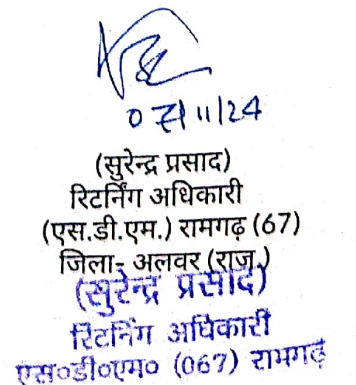 0 7/11/24
(सुरेन्द्र प्रसाद)
रिटर्निंग अधिकारी
(एस.डी.एम.) रामगढ़ (67)
जिला- अलवर (राज.)
(सुरेन्द्र प्रसाद)
रिटर्निंग अधिकारी
एस०डी०एम० (067) रामगढ़